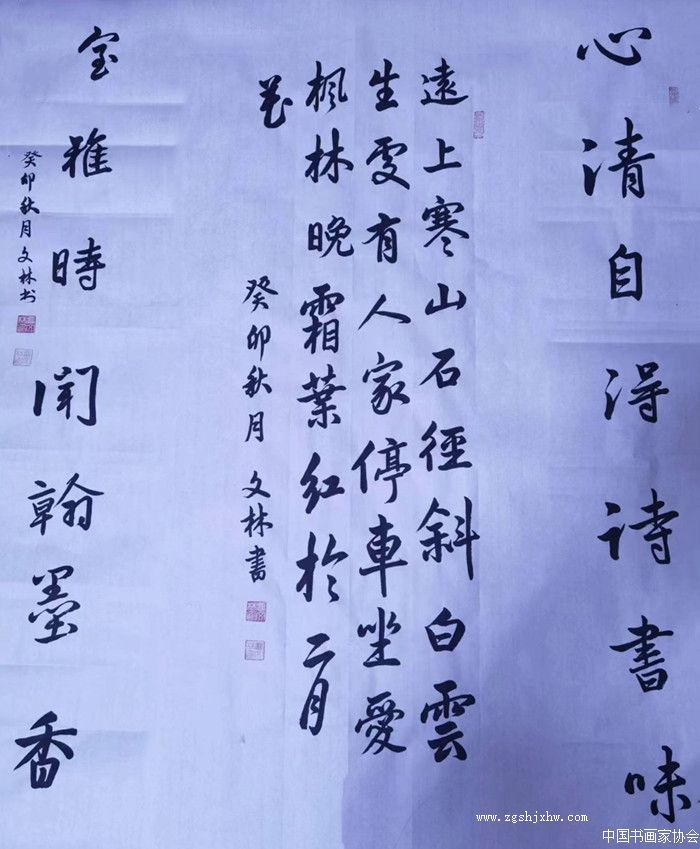 心清自得诗書味
遠上寒山石徑斜白雲
生處有人家停車坐愛
楓林晚霜葉紅於二月
花
癸卯秋月 文林書
室雅時闻翰墨香
癸卯秋月文林书
www.zgshjxhw.com
中国书画家协会